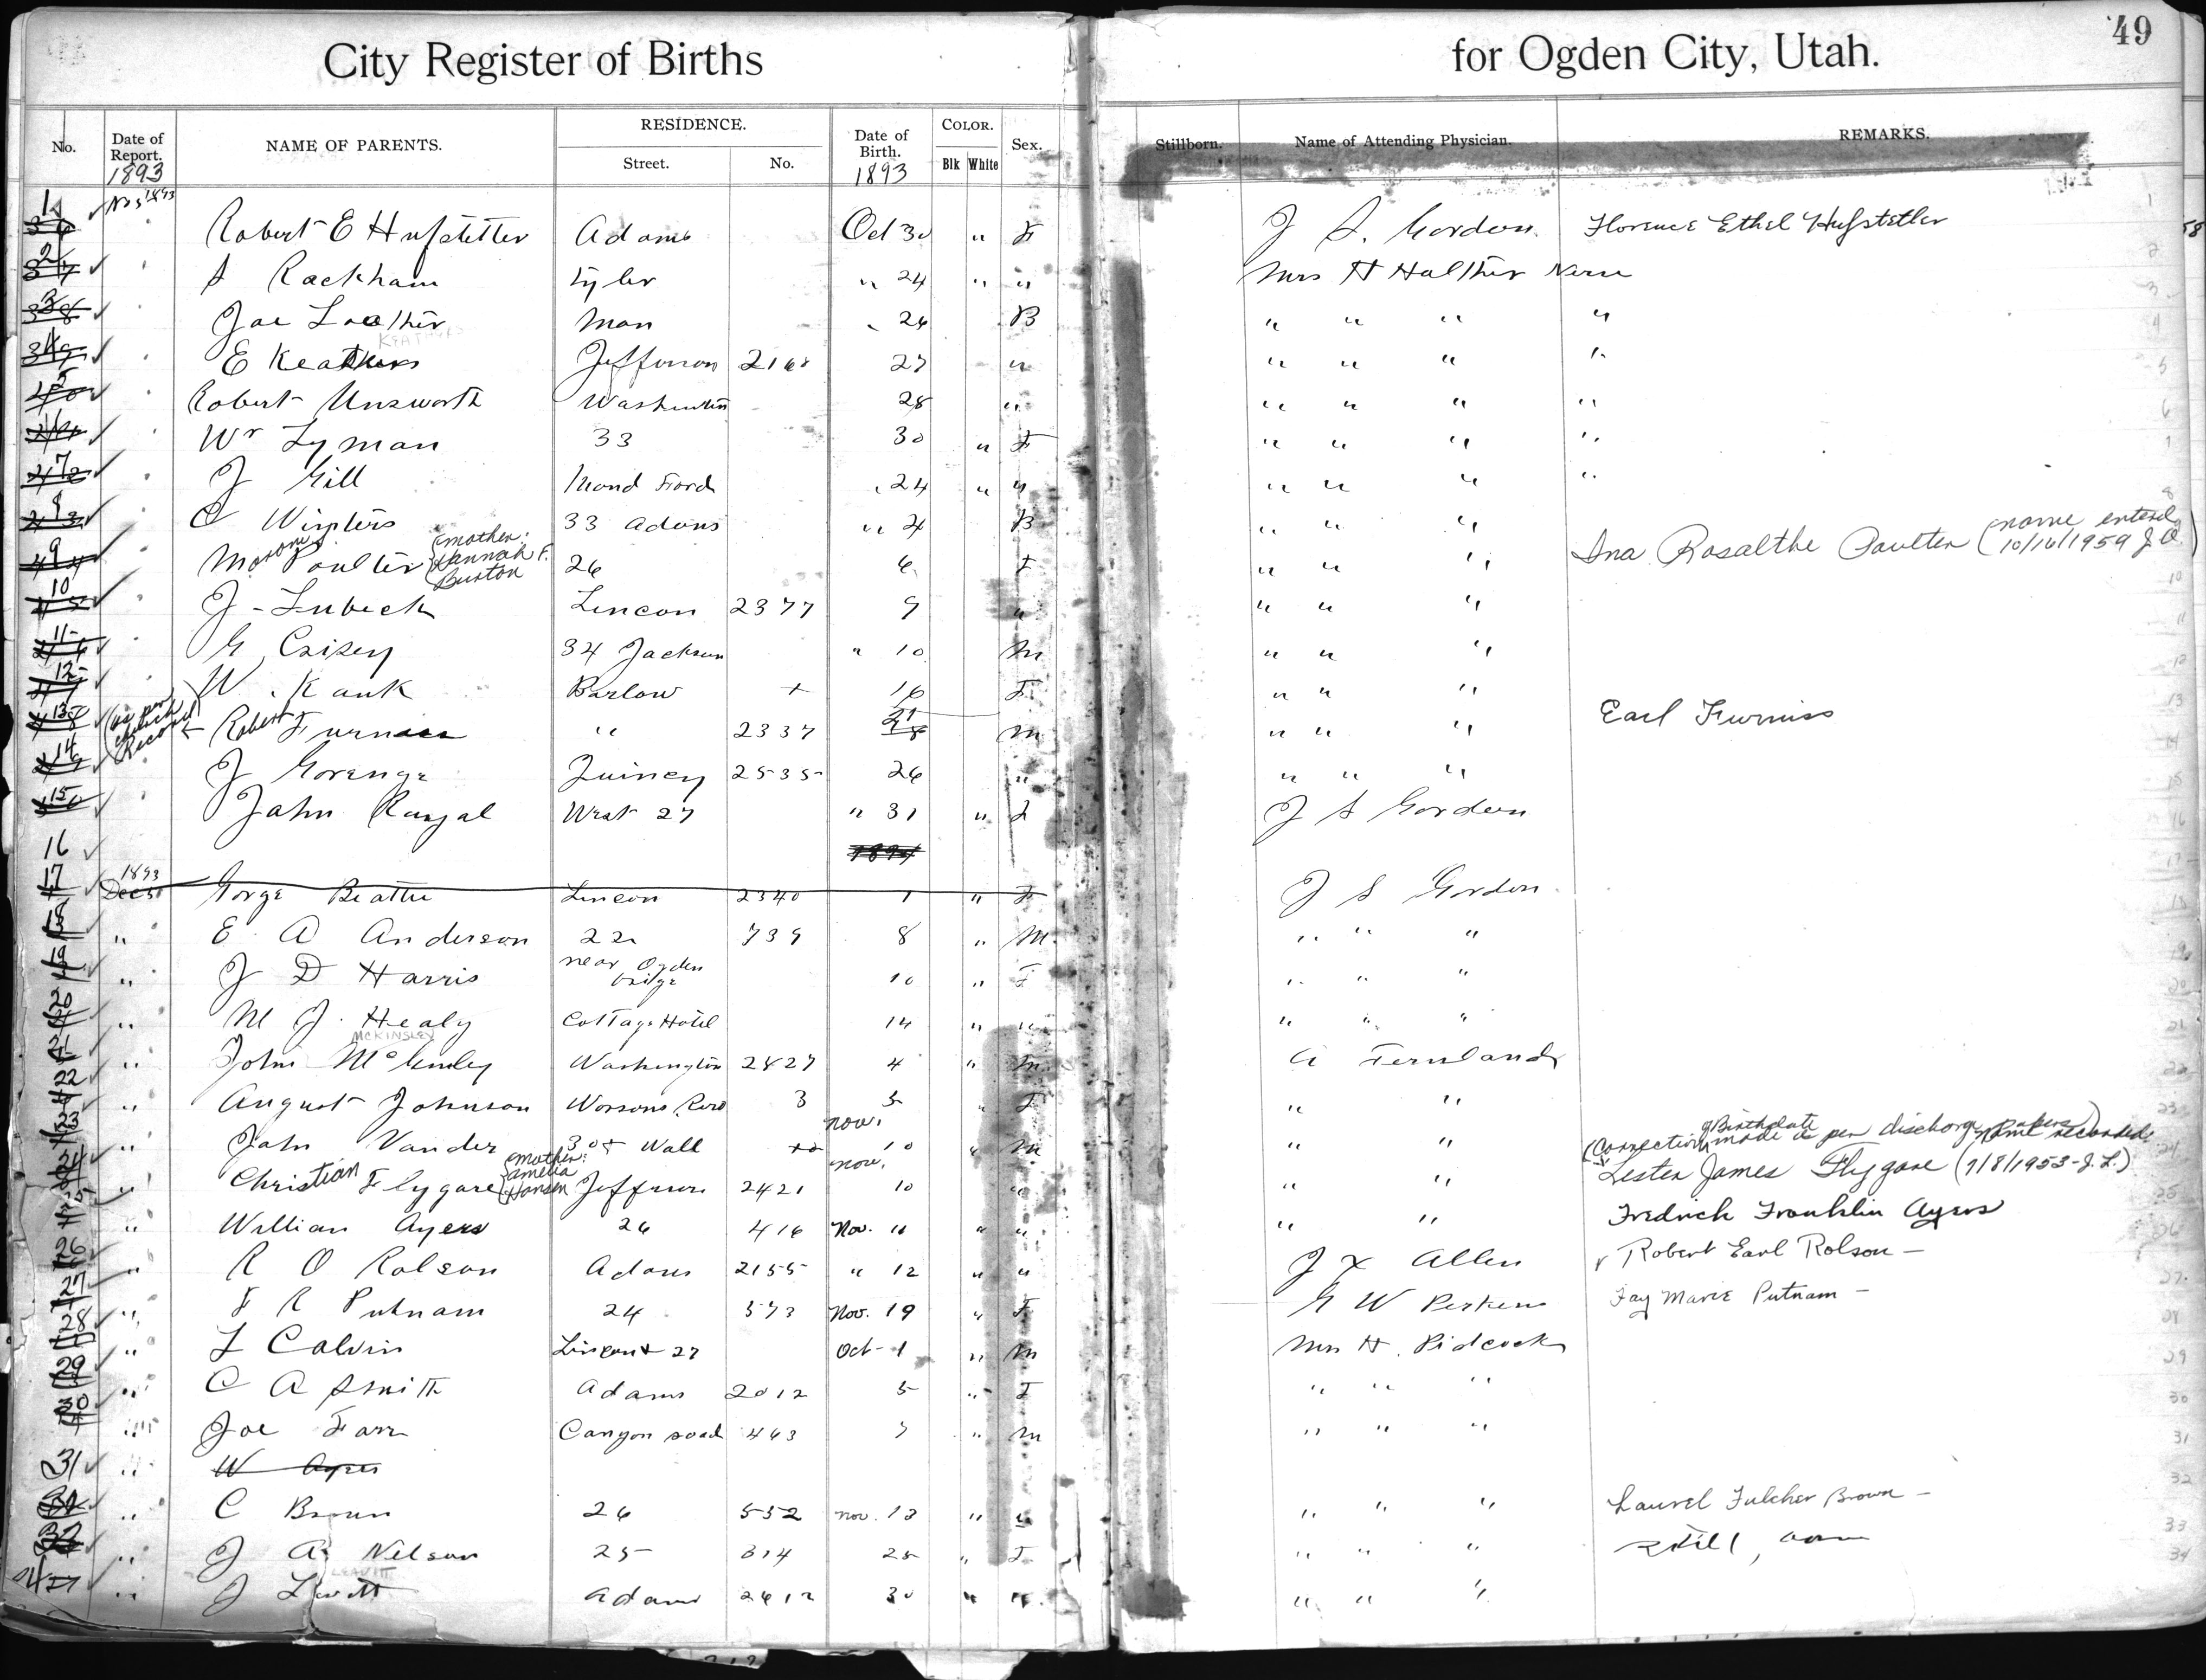 City Register of Births for Ogden City, Utah. 49
No. Date of Report. 1893 NAME OF PARENTS. RESIDENCE. Street. No. Date of Birth. 1893 COLOR. Blk White Sex. Stillborn. Name of Attending Physician. REMARKS.
1 Nov 5 1893 Robert E Hufstetter Adams Oct 30 " F J S. Gordon Florence Ethel Hufstetler
2 A Rackham Tyler " 24 " " Mrs H Halther Nurse
3 Joe Loother Mon " 26 B " " " "
4 E Keathers Jefferson 2168 27 " " " " "
5 Robert Unsworth Washington 28 " " " " "
Wr Lyman 33 30 " F " " " "
7 J Gill Mond Fiord " 24 " " " " " "
8 C Winters 33 Adams " 4 B " " "
9 Moroni Poulter (mother: Hannah F. Burton 26 6 F " " " Ina Rosalthe Poulter (name entered 10/16/1959 J.O.)
10 J Lubeck Lincon 2377 9 " " " "
11 G Crisey 34 Jackson " 10 M " " "
12 W. Kauk Barlow + 16 F. " " "
13 (as per church Record) Robert Furniss " 2337 21 M " " " Earl Furniss
14 J Gorenge Quincy 2535 26 " " " "
15 John Rangal West 27 " 31 " F J S Gordon
16 1894
17 1893 Dec 5 Gorge Beattie Lincon 2340 1 " F J S Gordon
18 " E A Anderson 22 739 8 " M. " " "
19 " J D Harris near Ogden bridge 10 " F " " "
20 " M J. Healy Cottage Hotel 14 " " " " "
MCKINSLEY
21 " John McKinley Washington 2427 4 " M A Fernlund
22 " August Johnson Worsons Row 3 5 " F " "
23 " John Vander 30 + Wall Nov. 10 " M " " (Correction of Birthdate made as per discharge papers) name recorded
24 Christian Flygare (mother: Amelia Hansen Jefferson 2421 nov. 10 " " " Lester James Flygare (7/8/1953-J.L.)
25 " William Ayers 26 416 Nov. 10 " " " " Fredrick Franklin Ayers
26 " R O Rolson Adams 2155 " 12 " " J X Allen Robert Earl Rolson -
27 " F R Putnam 24 573 Nov. 19 " F G W Perkins Fay Marie Putnam -
28 " L Calvin Lincon + 27 Oct 1 " M Mrs H. Pidcock
29 " C A Smith Adams 2012 5 " F " " "
30 " Joe Farr Canyon road 463 7 " M " " "
31 " W Ayers
" C Brown 26 552 nov. 13 " " " " " Laurel Fulcher Brown -
" J A Nelson 25 314 25 " F " " " Still born
LEAVITT
" J Levitt Adams 2612 30 " " " " "